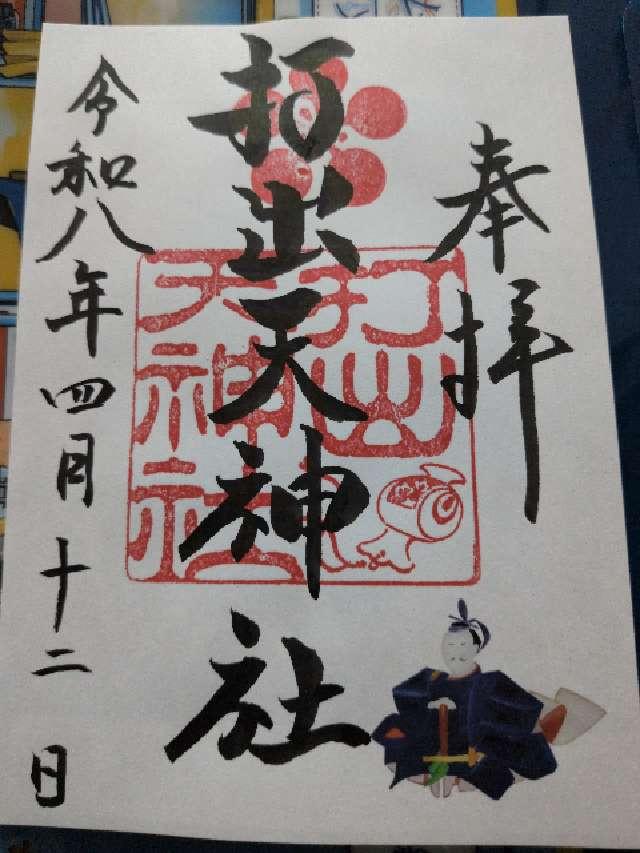 奉拝
打出天神社
打出
天神社
令和八年四月十二日